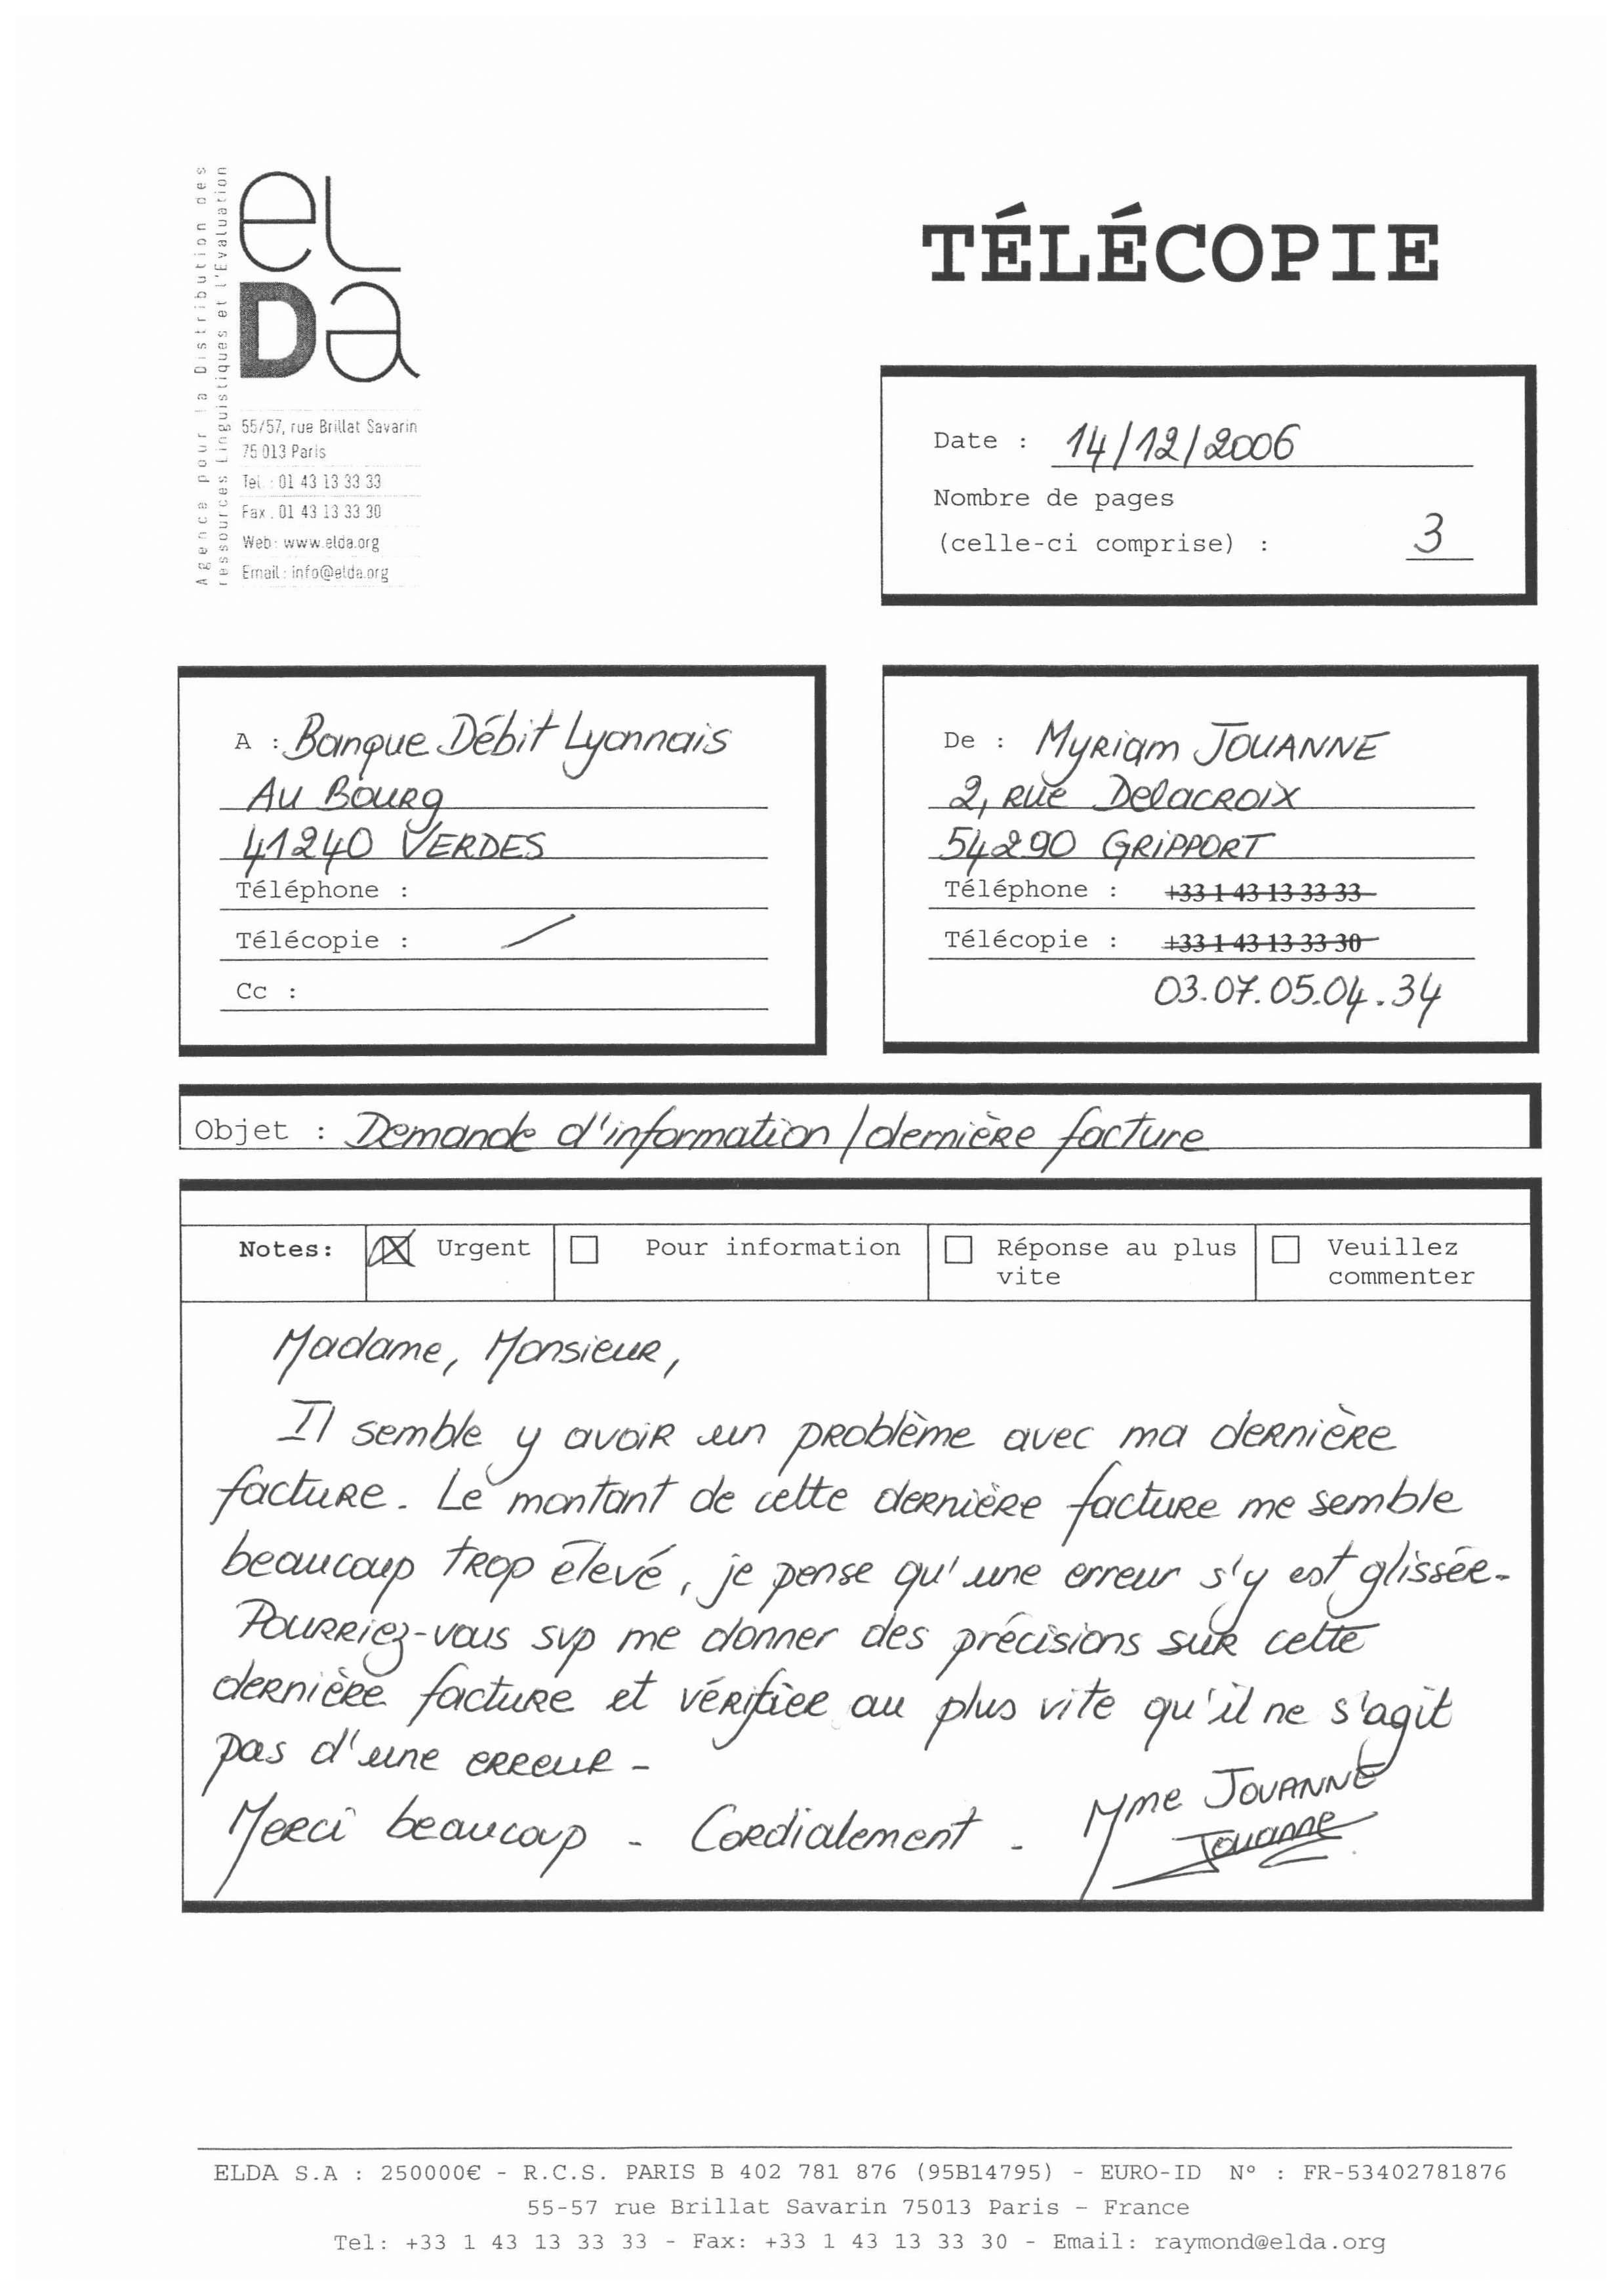 Agence pour la Distribution des
ressources Linguistiques et l'Evaluation
eL
Da
55/57, rue Brillat Savarin
75 013 Paris
Tel. : 01 43 13 33 33
Fax . 01 43 13 33 30
Web : www.elda.org
Email : info@elda.org
TÉLÉCOPIE
Date : 14/12/2006
Nombre de pages
(celle-ci comprise) : 3
A : Banque Débit Lyonnais
Au Bourg
41240 VERDES
Téléphone :
Télécopie : /
Cc :
De : Myriam JOUANNE
2, rue Delacroix
54290 GRIPPORT
Téléphone : +33 1 43 13 33 33
Télécopie : +33 1 43 13 33 30
03.07.05.04.34
Objet : Demande d'information / dernière facture
Notes: Urgent Pour information Réponse au plus vite Veuillez commenter
Madame, Monsieur,
Il semble y avoir un problème avec ma dernière
facture. Le montant de cette dernière facture me semble
beaucoup trop élevé, je pense qu'une erreur s'y est glissée.
Pourriez-vous svp me donner des précisions sur cette
dernière facture et vérifier au plus vite qu'il ne s'agit
pas d'une erreur -
Merci beaucoup - Cordialement - Mme JOUANNE
Jouanne
ELDA S.A : 250000€ - R.C.S. PARIS B 402 781 876 (95B14795) - EURO-ID N° : FR-53402781876
55-57 rue Brillat Savarin 75013 Paris – France
Tel: +33 1 43 13 33 33 - Fax: +33 1 43 13 33 30 - Email: raymond@elda.org